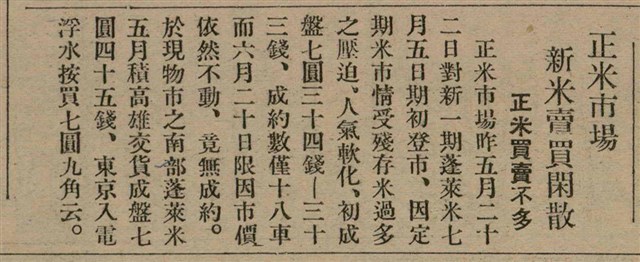 正米市場
新米賣買閑散
正米買賣不多
正米市場昨五月二十
二日對新一期蓬萊米七
月五日期初登市、因定
期米市情受殘存米過多
之壓迫、人氣軟化、初成
盤七圓三十四錢—三十
三錢、成約數僅十八車
而六月二十日限因市價
依然不動、竟無成約。
於現物市之南部蓬萊米
五月積高雄交貨成盤七
圓四十五錢、東京入電
浮水按買七圓九角云。